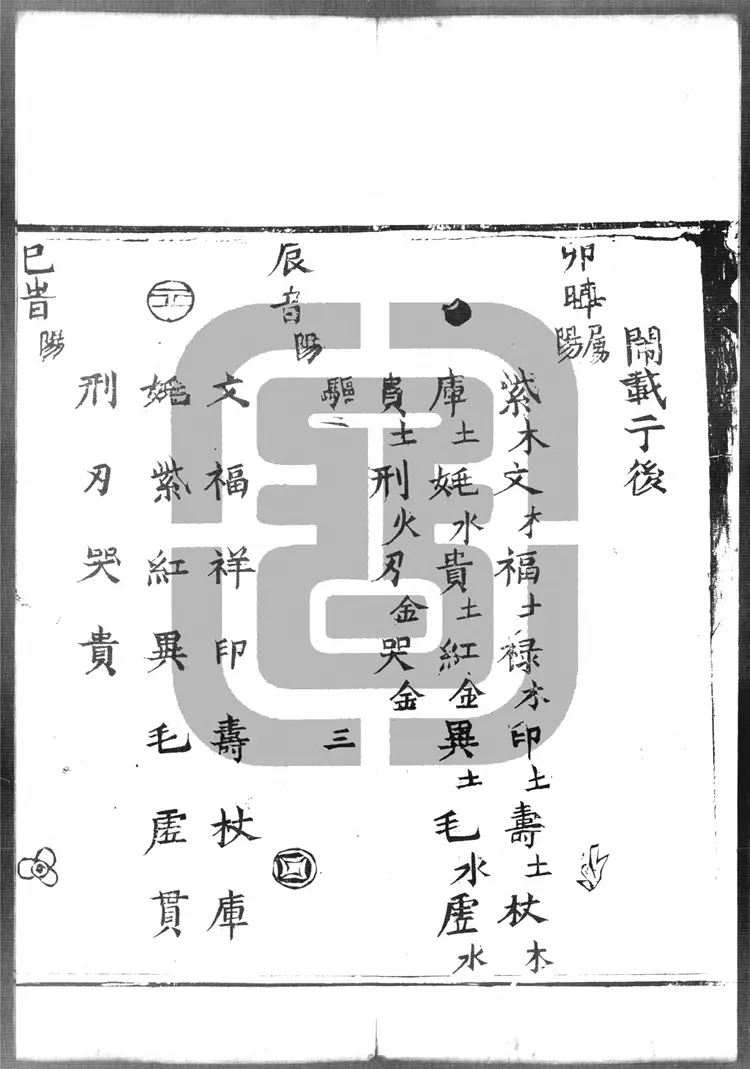 卯時屬陽
開載于後
紫木文木福土祿木印土壽土杖木
庫土姚水貴土紅金異土毛水虛水
貫土刑火刃金哭金
驅二 三
辰時陽
文福祥印壽杖庫
姚紫紅異毛虛貫
刑刃哭貴
巳時陽